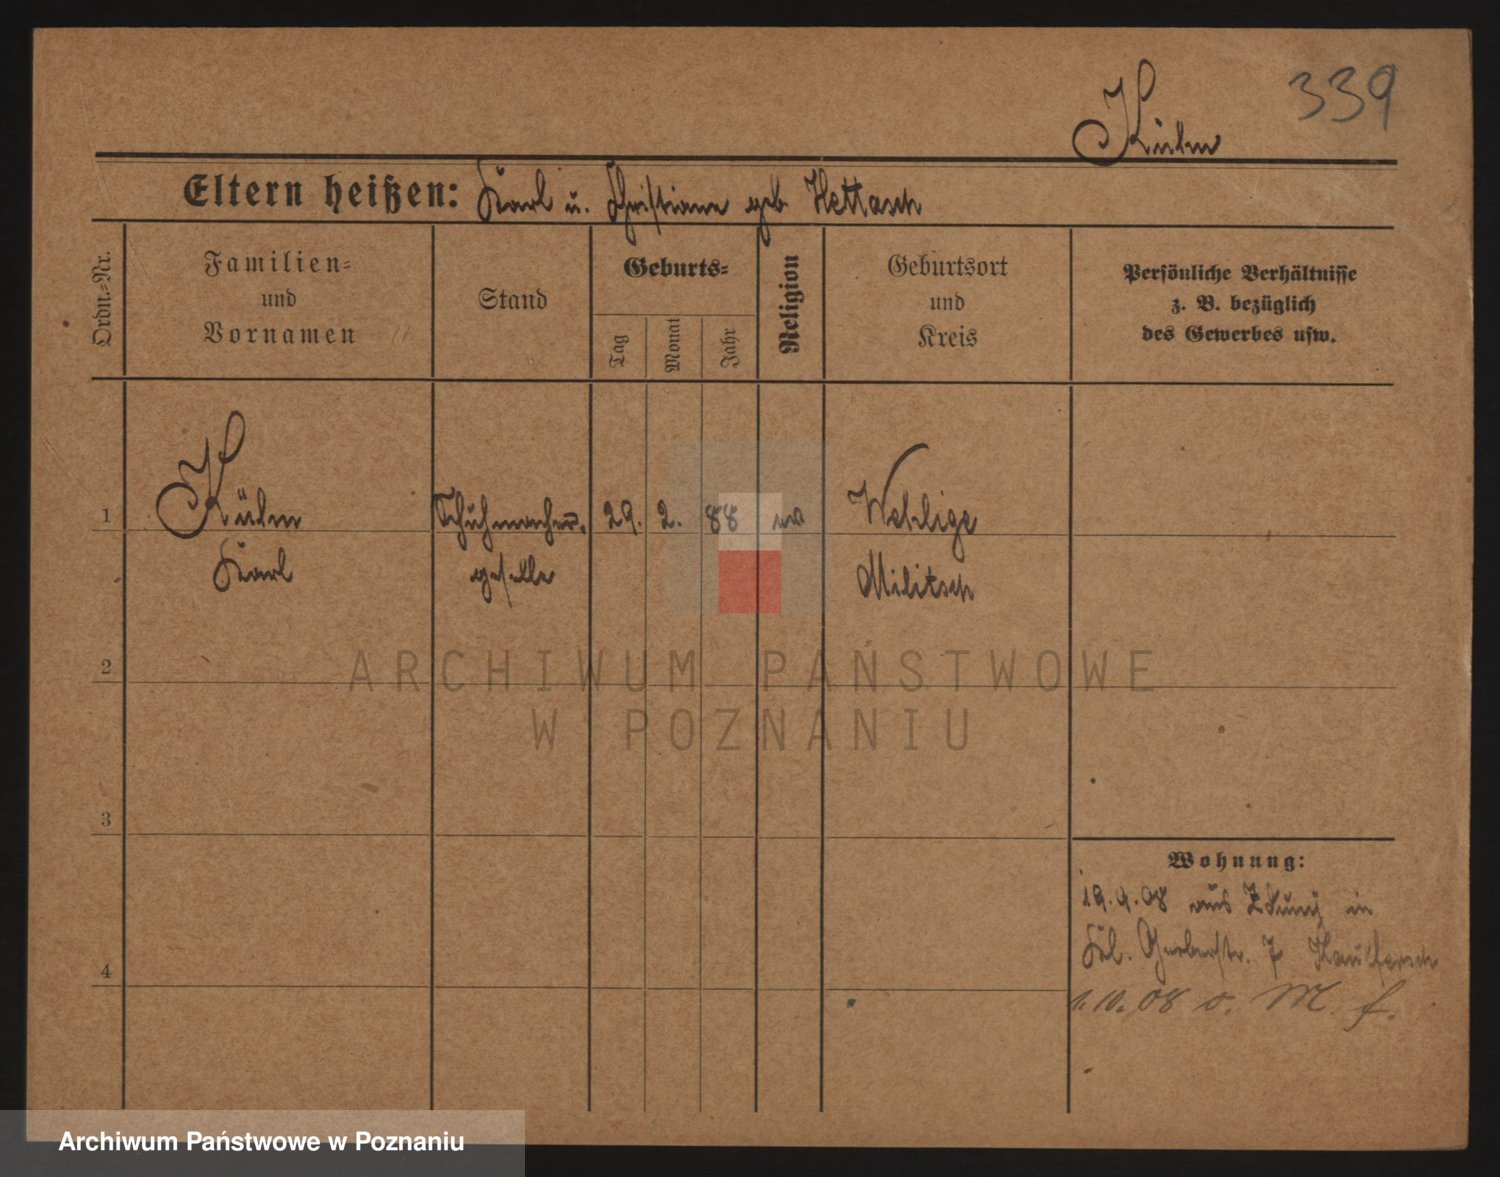 339
Kühn
Eltern heißen: Karl u. Christiane geb. Hettasch
Ordn.-Nr.
Familien-
und
Vornamen
Stand
Geburts-
Tag
Monat
Jahr
Religion
Geburtsort
und
Kreis
Persönliche Verhältnisse
z. B. bezüglich
des Gewerbes usw.
1
Kühn
Karl
Schuhmacher-
geselle
29.
2.
88
ev
Wehlige
Militsch
2
ARCHIWUM PAŃSTWOWE
W POZNANIU
3
Wohnung:
19.9.08 aus Zduny in
Gerberstr. 7
4
1.10.08 o. M. f.
Archiwum Państwowe w Poznaniu